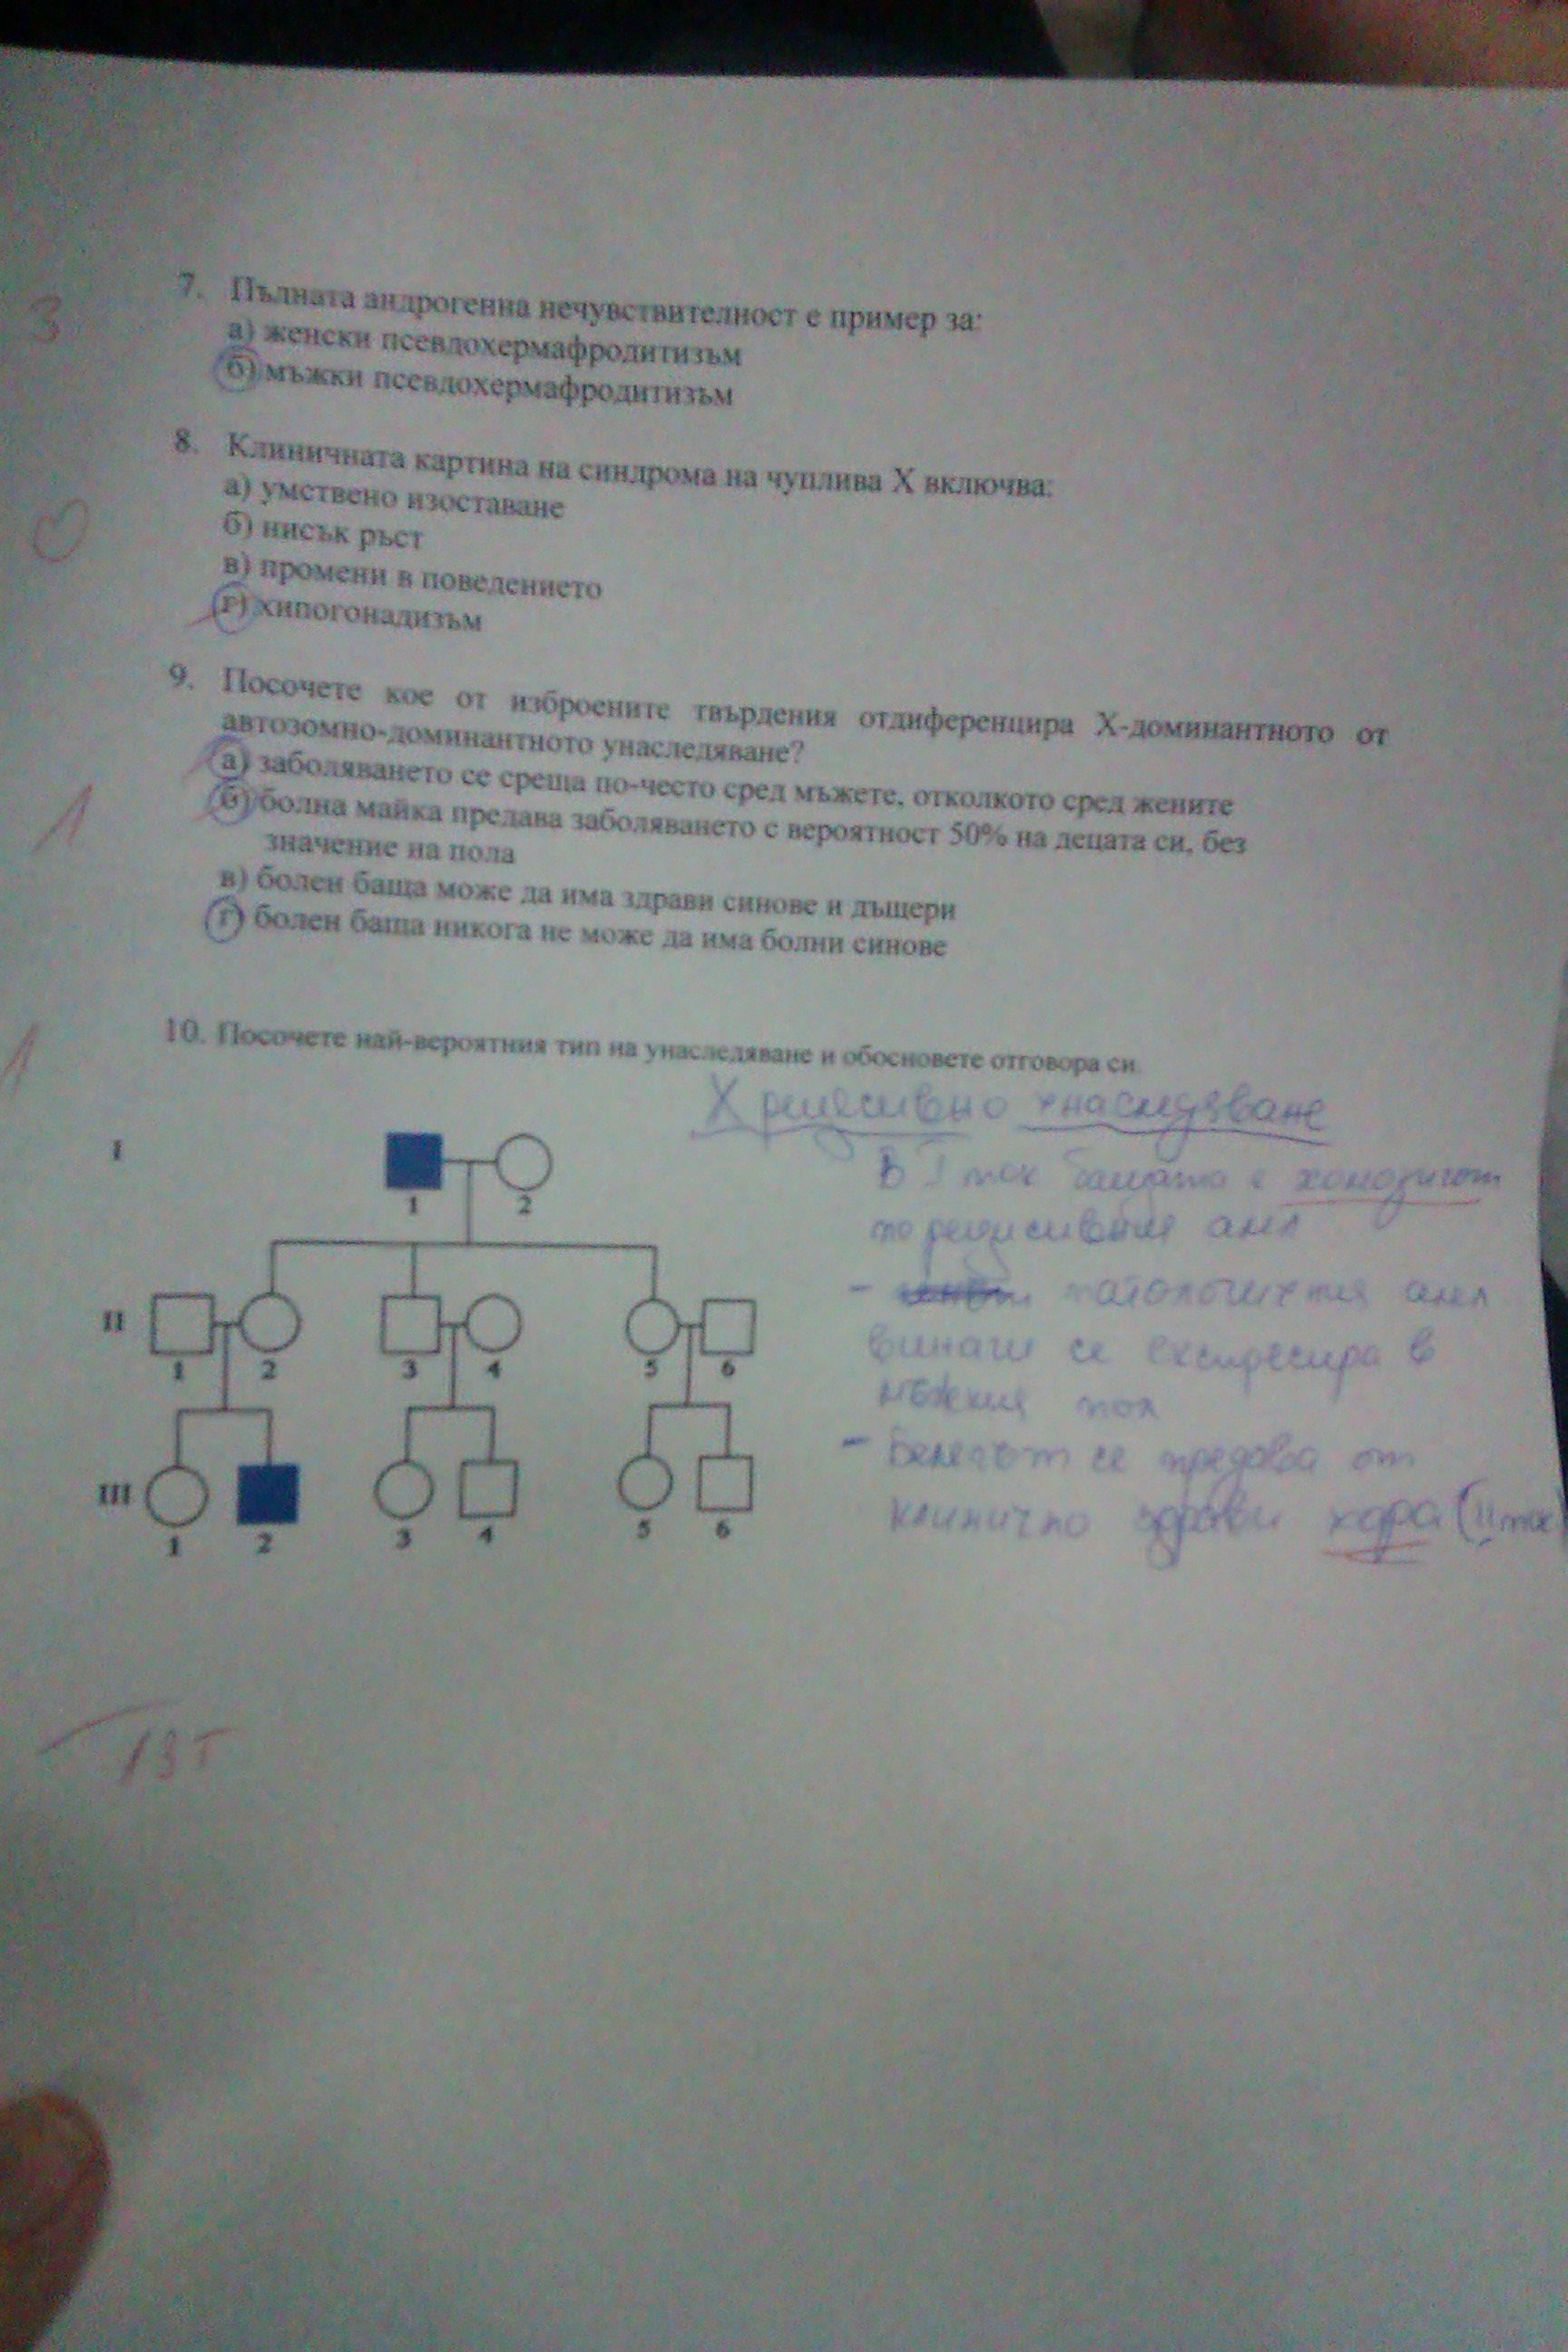 3
7. Пълната андрогенна нечувствителност е пример за:
а) женски псевдохермафродитизъм
б) мъжки псевдохермафродитизъм
0
8. Клиничната картина на синдрома на чуплива Х включва:
а) умствено изоставане
б) нисък ръст
в) промени в поведението
г) хипогонадизъм
1
9. Посочете кое от изброените твърдения отдиференцира Х-доминантното от
автозомно-доминантното унаследяване?
а) заболяването се среща по-често сред мъжете, отколкото сред жените
б) болна майка предава заболяването с вероятност 50% на децата си, без
значение на пола
в) болен баща може да има здрави синове и дъщери
г) болен баща никога не може да има болни синове
1
10. Посочете най-вероятния тип на унаследяване и обосновете отговора си
Х рецесивно унаследяване
В I пок бащата е хомозигот
по рецесивния алел
- патологичния алел
винаги се експресира в
мъжкия пол
- Белегът се предава от
клинично здрави хора (II пок
I
1 2
II
1 2 3 4 5 6
III
1 2 3 4 5 6